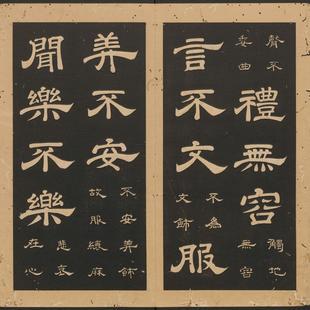 聲不
委曲
禮無容
觸地
無容
言不文
不為
文飾
服
美不安
不安美飾
故服縗麻
聞樂不樂
悲哀
在心